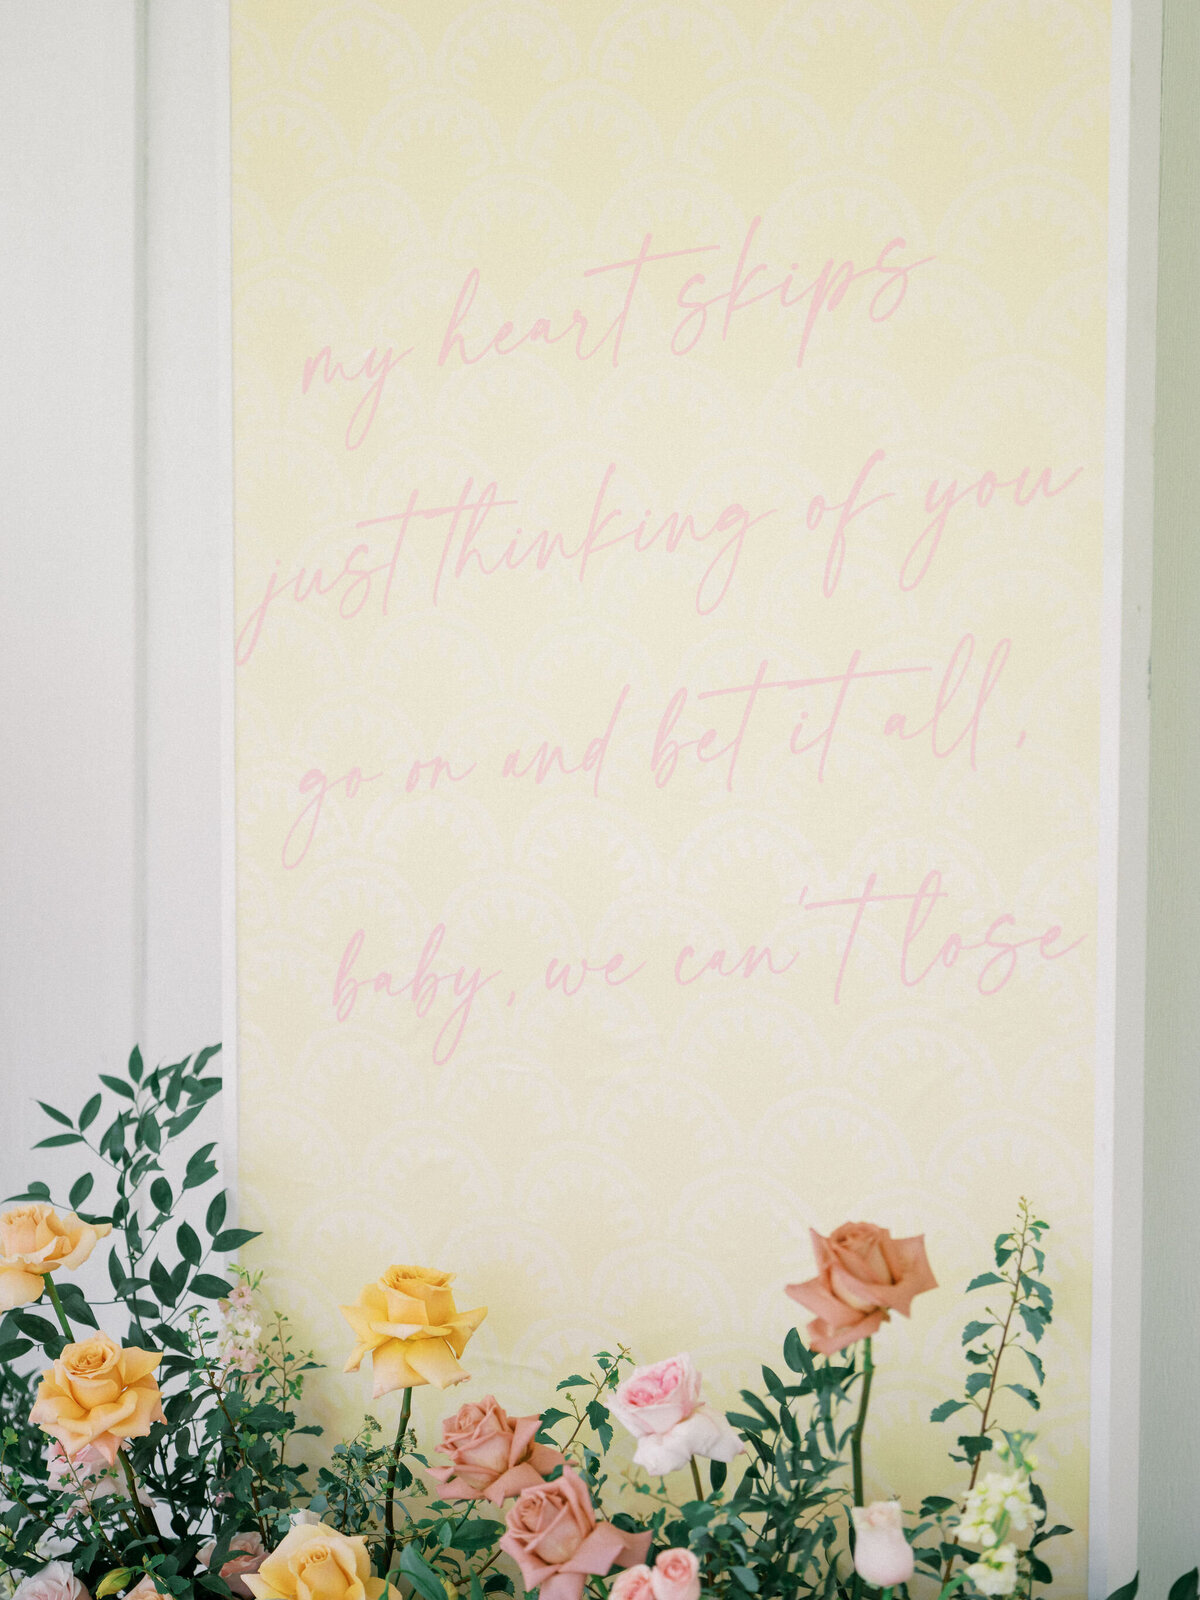 my heart skips
just thinking of you
go on and bet it all,
baby, we can't lose